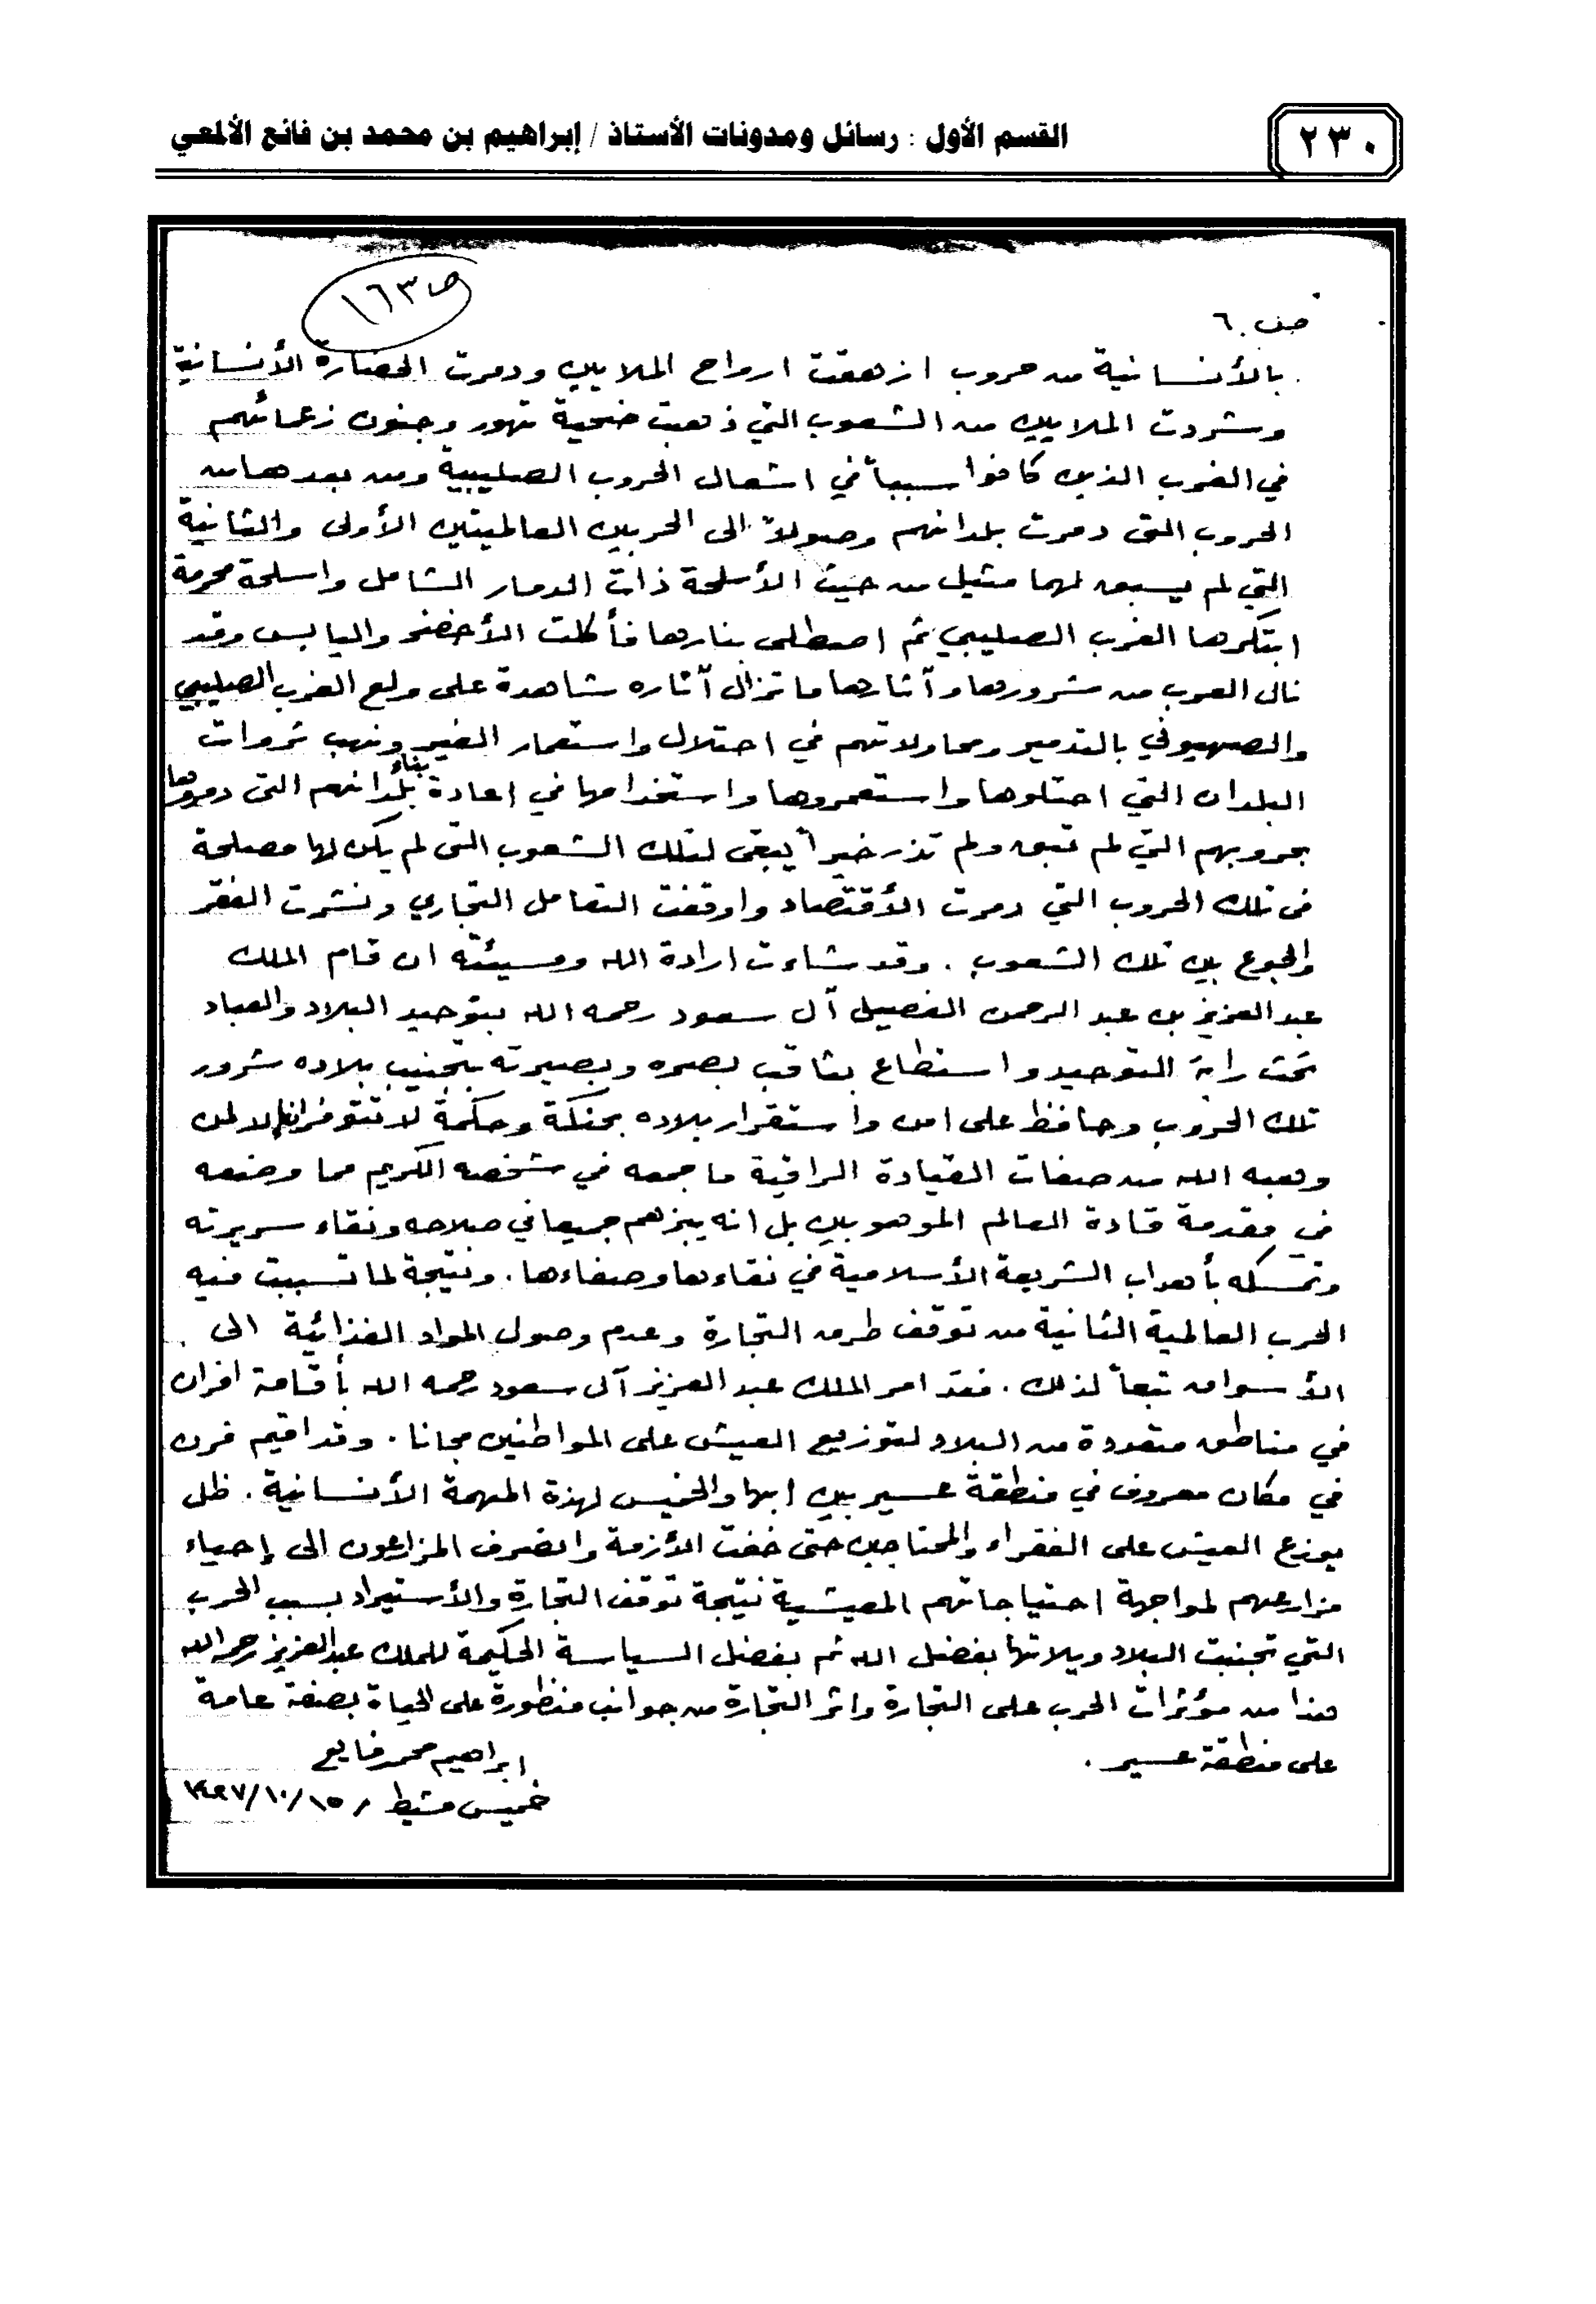 ٢٣٠
القسم الأول : رسائل ومدونات الأستاذ / إبراهيم بن محمد بن فائع الألمعي
ص١٦٣
ص ٦
بالأنسانية من حروب ازهقت ارواح الملايين ودمرت الحضارة الأنسانية
وشردت الملايين من الشعوب التي ذهبت ضحية تهور وجنون زعمائهم
في الغرب الذين كانوا سبباً في اشعال الحروب الصليبية ومن بعدها من
الحروب التى دمرت بلدانهم وصولاً الى الحربين العالميتين الأولى والثانية
التي لم يسبق لهما مثيل من حيث الأسلحة ذات الدمار الشامل واسلحة محرمة
ابتكرها الغرب الصليبي ثم اصطلى بنارها فأكلت الأخضر واليابس وقد
نال العرب من شرورها وآثارها ما تزال آثاره شاهدة على ولع الغرب الصليبي
والصهيوني بالتدمير ومحاولاتهم في احتلال واستعمار الغير ونهب ثروات
البلدان التي احتلوها واستعمروها واستخدامها في اعادة بناء بلدانهم التى دمروها
بحروبهم التي لم تبق ولم تذر خيراً يبقى لتلك الشعوب التى لم يكن لها مصلحة
فى تلك الحروب التي دمرت الأقتصاد واوقفت التعامل التجاري ونشرت الفقر
والجوع بين تلك الشعوب . وقد شاءت ارادة الله ومسيئته ان قام الملك
عبد العزيز بن عبد الرحمن الفصيل آل سعود رحمه الله بتوحيد البلاد والعباد
تحت راية التوحيد واستطاع بثاقب بصره وبصيرته بتجنيب بلاده شرور
تلك الحروب وحافظ على امن واستقرار بلاده بحنكة وحكمة لا تتوفر إلا لمن
وهبه الله من صفات القيادة الراقية ما جمعه في شخصه الكريم مما وضعه
في مقدمة قادة العالم الموهوبين بل انه يبزهم جميعا في صلاحه ونقاء سريرته
وتمسكه بأهداب الشريعة الأسلامية في نقاءها وصفاءها . ونتيجة لما تسببت فيه
الحرب العالمية الثانية من توقف طرق التجارة وعدم وصول المواد الغذائية الى
الأسواق تبعاً لذلك . فقد امر الملك عبد العزيز آل سعود رحمه الله بأقامة افران
في مناطق متعددة من البلاد لتوزيع العيش على المواطنين مجانا . وقد اقيم فرن
في مكان معروف في منطقة عسير بين ابها والخميس لهذة المهمة الأنسانية . ظل
يوزع العيش على الفقراء والمحتاجين حتى خفت الأزمة وانصرف المزارعون الى إحياء
مزارعهم لمواجهة احتياجاتهم المعيشية نتيجة توقف التجارة والأستيراد بسبب الحرب
التي تجنبت البلاد ويلاتها بفضل الله ثم بفضل السياسة الحكيمة للملك عبد العزيز رحمه الله
هذا من مؤثرات الحرب على التجارة واثر التجارة من جوانب منظورة على الحياة بصفة عامة
على منطقة عسير .
ابراهيم محمد فايع
خميس مشيط ١٤٢٧/١٠/١٥